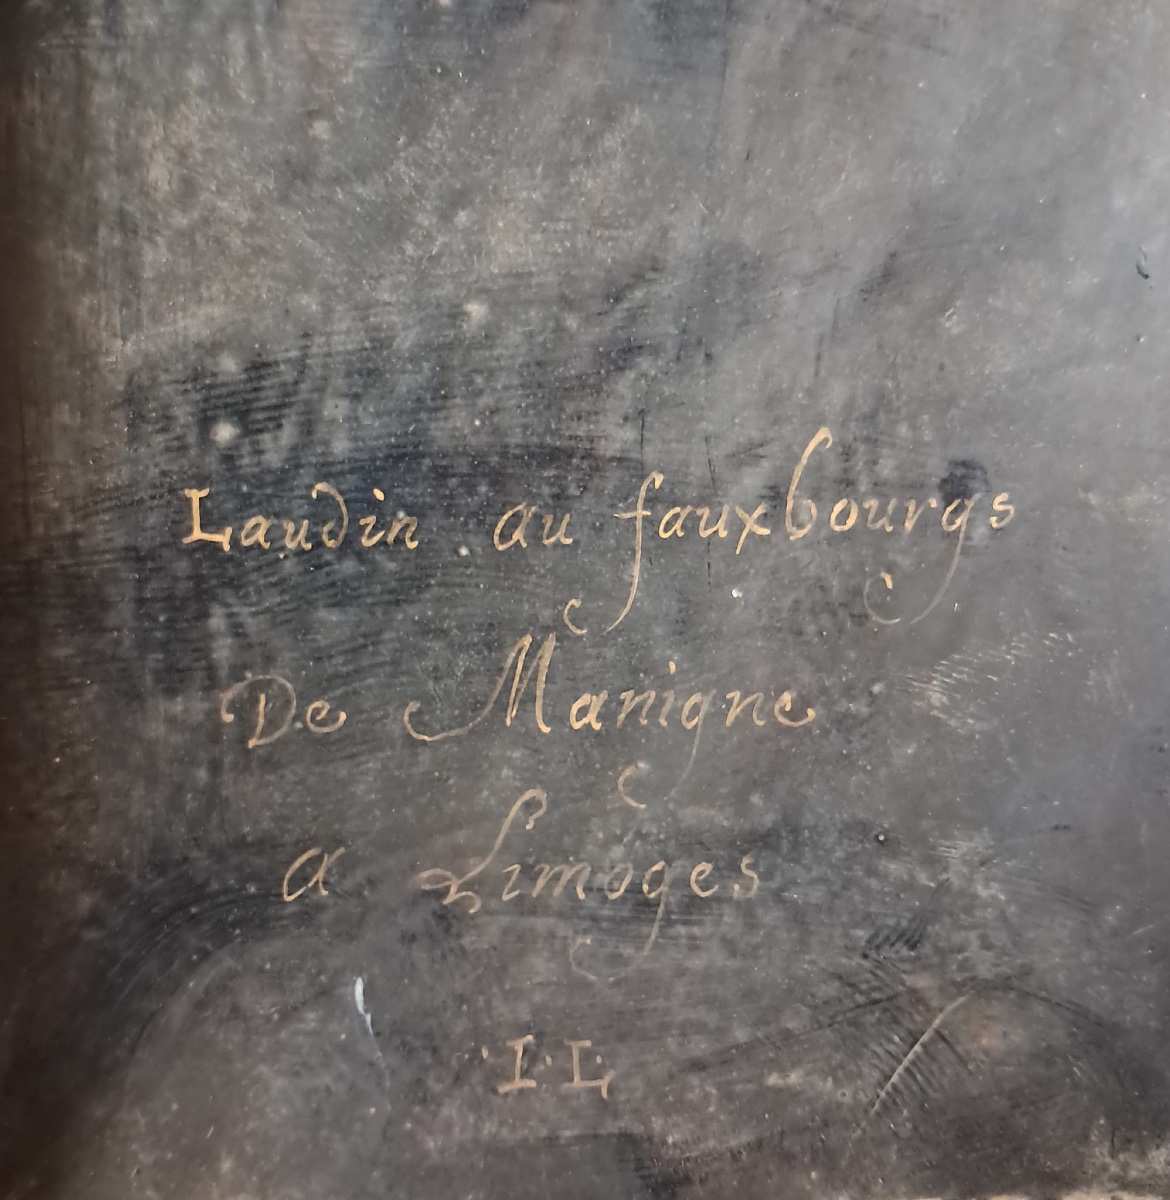 Laudin au fauxbourgs
De Manigne
a Limoges
·I·L·